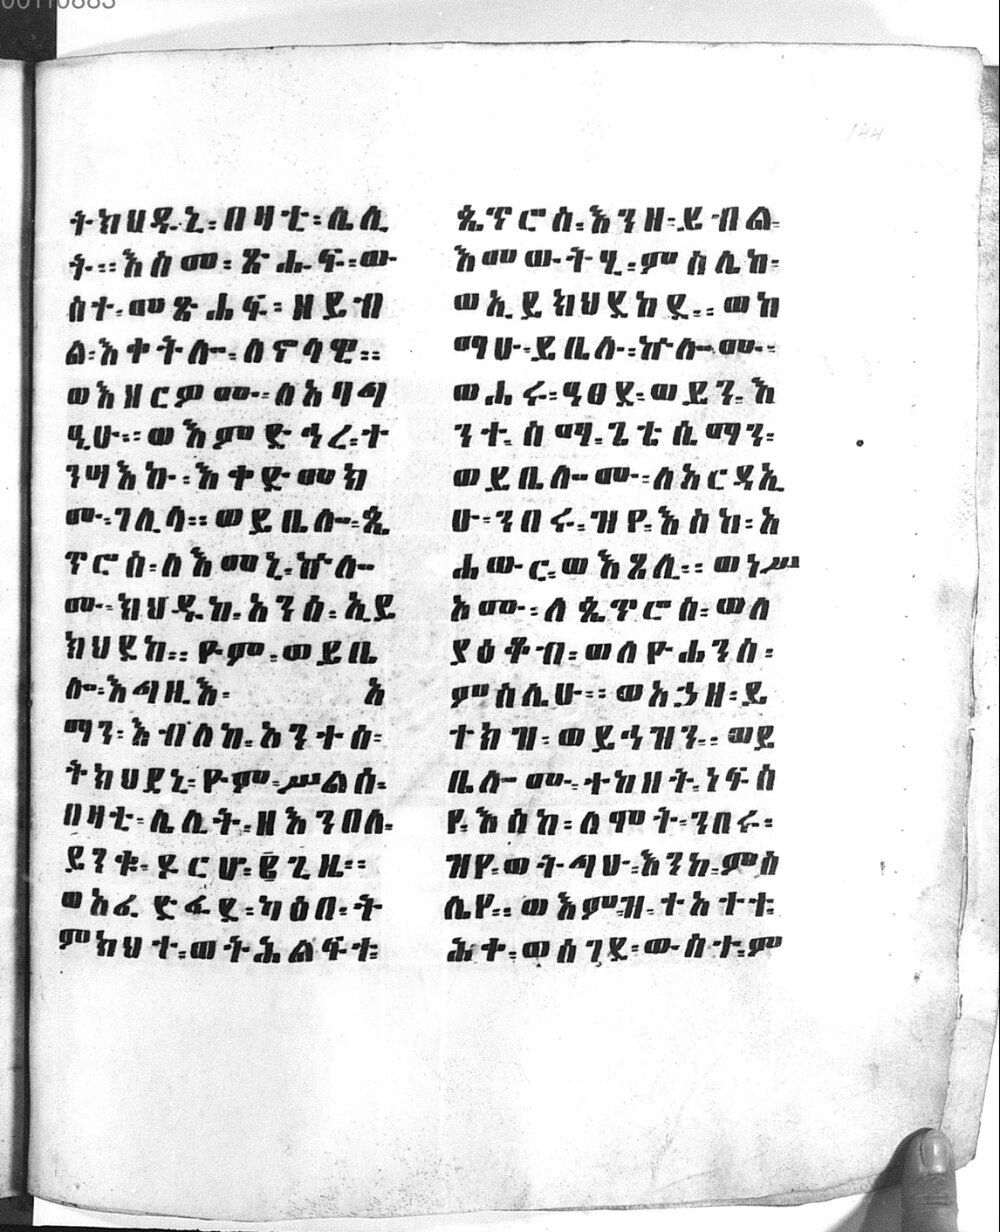 00110883
144
ትክህዱኒ፡በዛቲ፡ሌሊ
ት። እስመ፡ጽሑፍ፡ው
ስተ፡መጽሐፍ፡ዘይብ
ል፡እቀትሎ፡ለኖላዊ።
ወእዘርዎሙ፡ለአባግ
ዒሁ። ወእምድኅረ፡ተ
ንሣእኩ፡እቀድመክ
ሙ፡ገሊላ። ወይቤሎ፡ጴ
ጥሮስ፡ለእመኒ፡ኵሎ
ሙ፡ክህዱከ፡አንሰ፡ኢይ
ክህደከ። ዮም፡ወይቤ
ሎ፡እግዚእ፡ አ
ማን፡እብለከ፡አንተሰ፡
ትክህደኒ፡ዮም፡ሥልሰ፡
በዛቲ፡ሌሊት፡ዘእንበለ፡
ይንቁ፡ዶርሆ፡፪ጊዜ።
ወአፈድፋደ፡ካዕበ፡ት
ምክህተ፡ወትሕልፍተ፡
ጴጥሮስ፡እንዘ፡ይብል፡
እመውትሂ፡ምስሌከ፡
ወኢይክህደከደ። ወከ
ማሁ፡ይቤሉ፡ኵሎሙ፡
ወሖሩ፡ዓፀደ፡ወይን፡እ
ንተ፡ስማ፡ጌቴሴማን፡
ወይቤሎሙ፡ለአርዳኢ
ሁ፡ንበሩ፡ዝየ፡እስከ፡አ
ሐውር፡ወእጼሊ። ወነሥ
አሙ፡ለጴጥሮስ፡ወለ
ያዕቆብ፡ወለዮሐንስ፡
ምስሌሁ። ወአኃዘ፡ይ
ተክዝ፡ወይኅዝን። ወይ
ቤሎሙ፡ተከዘት፡ነፍስ
የ፡እስከ፡ለሞት፡ንበሩ፡
ዝየ፡ወትግሁ፡እንከ፡ምስ
ሌየ። ወእምዝ፡ተአተተ፡
ሕቀ፡ወሰገደ፡ውስተ፡ም